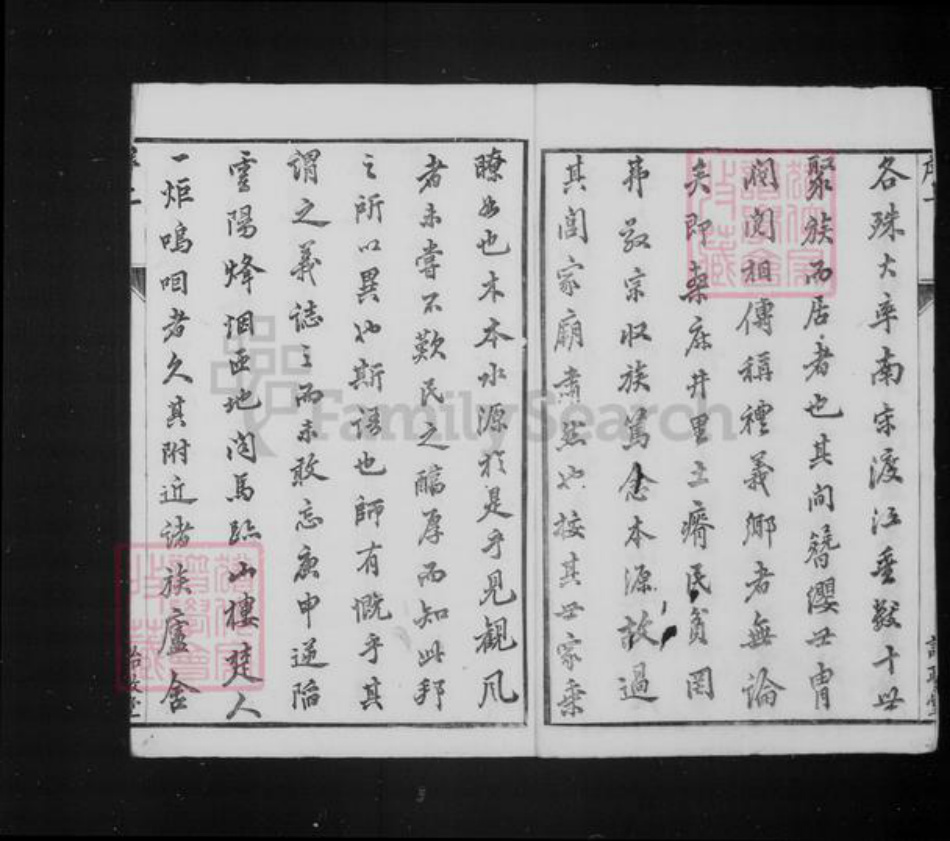 各殊大率南宋渡江垂數十世
聚族而居者也其间簪纓世冑
閥閱相傳稱禮義鄉者無論
矣即桑麻井里土瘠民貧罔
弗敬宗收族篤念本源故過
其閭家廟肅然也按其世家乘
瞭如也木本水源於是乎見觀風
者未嘗不歎民之醕厚而知此邦
之所以異也斯語也師有慨乎其
謂之義誌之而未敢忘庚申逆陷
雲陽烽烟匝地闪馬臨山樓楚人
一炬嗚咽者久其附近諸族廬舍
FamilySearch